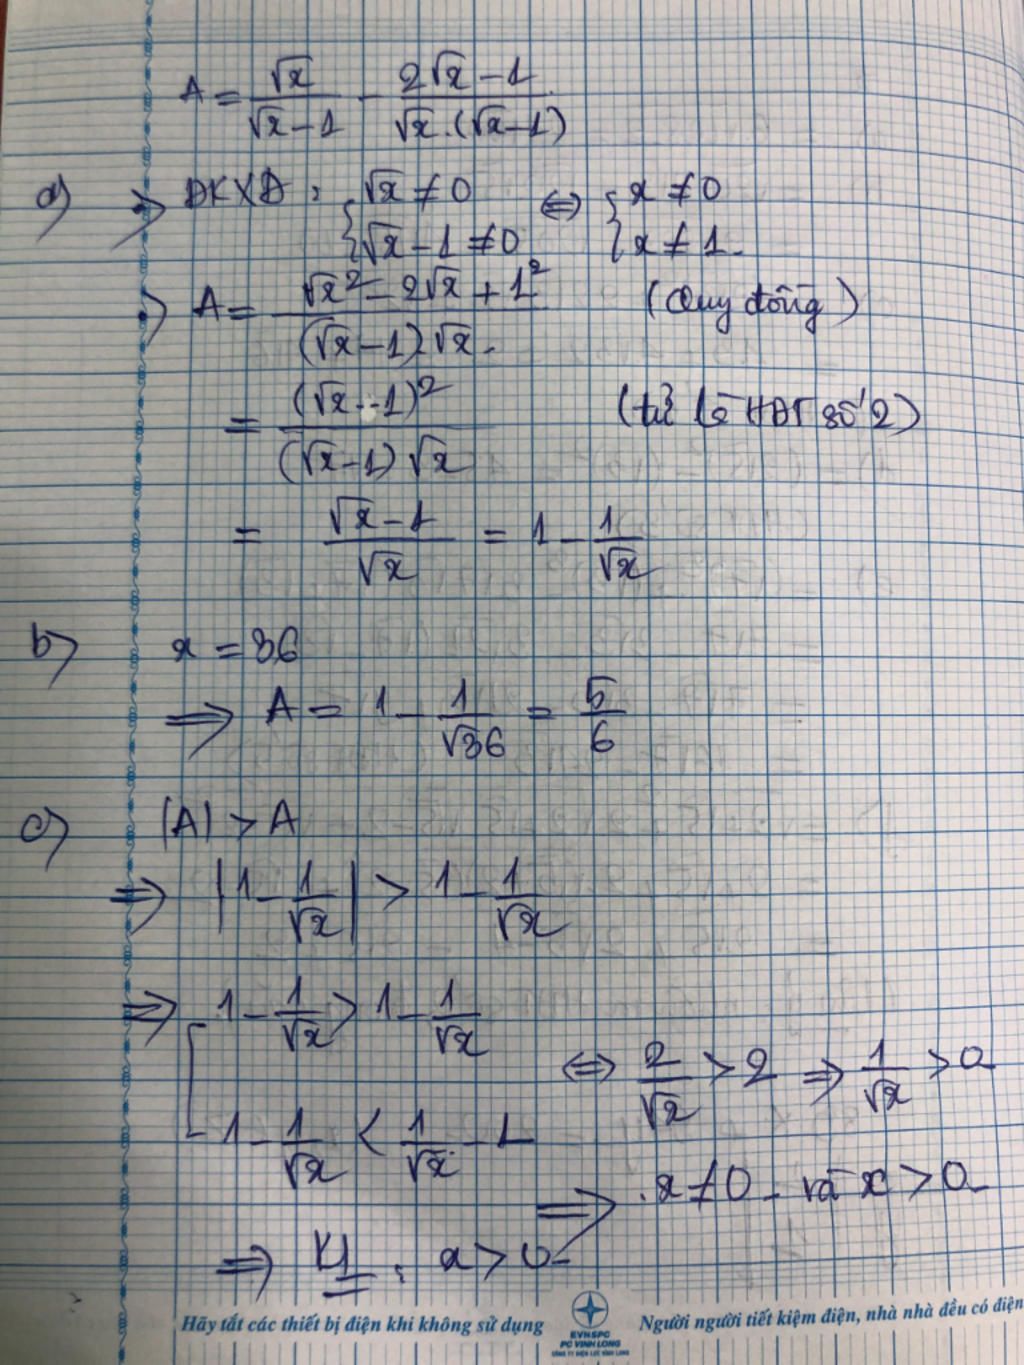 A = √x / (√x - 1) - (2√x - 1) / (√x . (√x - 1))
a) → ĐKXĐ : { √x ≠ 0 ⇔ { x ≠ 0
{ √x - 1 ≠ 0 { x ≠ 1.
→ A = (√x² - 2√x + 1²) / ((√x - 1) √x) (Quy đồng)
= (√x - 1)² / ((√x - 1) √x) (tử là HĐT số 2)
= (√x - 1) / √x = 1 - 1/√x
b) x = 36
⇒ A = 1 - 1/√36 = 5/6
c) |A| > A
⇒ |1 - 1/√x| > 1 - 1/√x
⇒ [ 1 - 1/√x > 1 - 1/√x
[ 1 - 1/√x < 1/√x - 1 ⇔ 2/√x > 2 ⇒ 1/√x > 0
⇒ x ≠ 0 và x > 0
⇒ Kl : x > 0
Hãy tắt các thiết bị điện khi không sử dụng
EVNSPC
PC VINH LONG
CÔNG TY ĐIỆN LỰC VĨNH LONG
Người người tiết kiệm điện, nhà nhà đều có điện